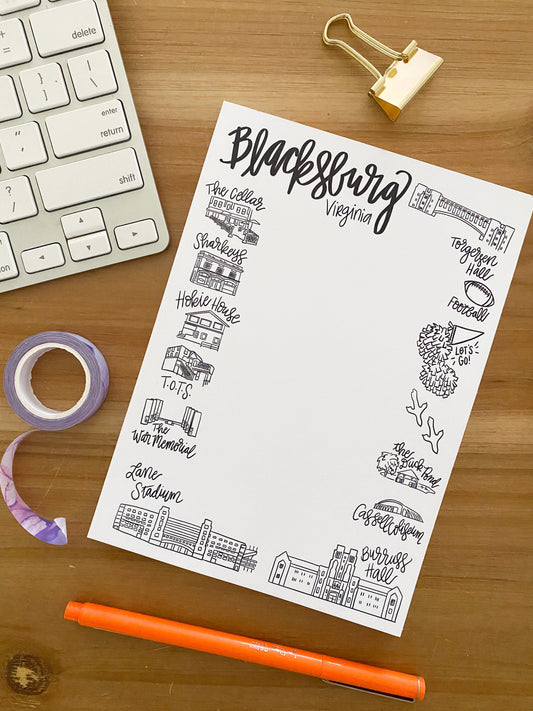 delete
enter
return
shift
Blacksburg
Virginia
The Cellar
Sharkeys
Hokie House
T.O.T.S.
The
War Memorial
Lane
Stadium
Torgersen
Hall
Football!
LET'S
GO!
The
Duck Pond
Cassell Coliseum
Burruss
Hall